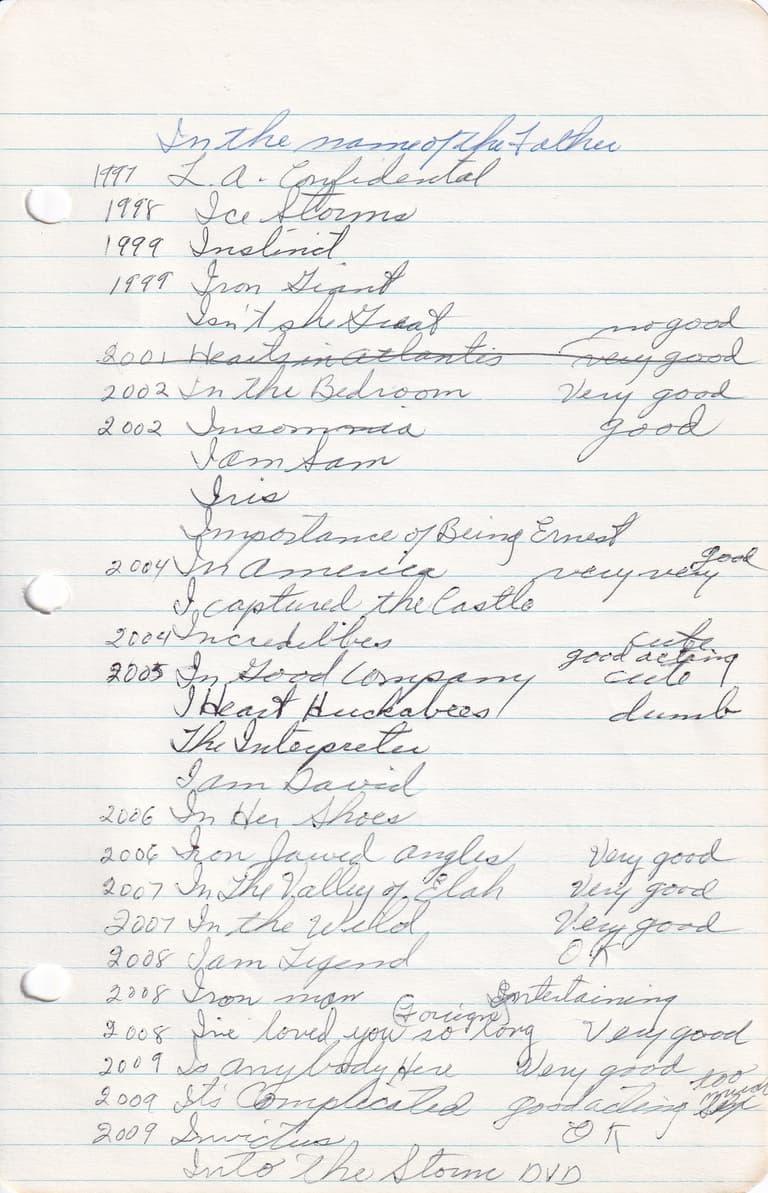 In the name of the Father
1997 L.A. Confidental
1998 Ice Storms
1999 Instinct
1999 Iron Giant
Isn't she Great no good
2001 Hearts in atlantis very good
2002 In the Bedroom Very good
2002 Insomnia good
I am Sam
Iris
Importance of Being Ernest
2004 In America very very good
I captured the Castle
2004 Incredilbes cute
2005 In Good Company good acting cute
I Heart Huckabees dumb
The Interpreter
I am David
2006 In Her Shoes
2006 Iron Jawed angles Very good
2007 In The Valley of Elah Very good
2007 In the Wild Very good
2008 I am Legend OK
2008 Iron man Entertaining
2008 I've loved you so long (Foreign) Very good
2009 Is anybody Here Very good
2009 It's Complicated good acting too much sex
2009 Invictus OK
Into The Storm DVD